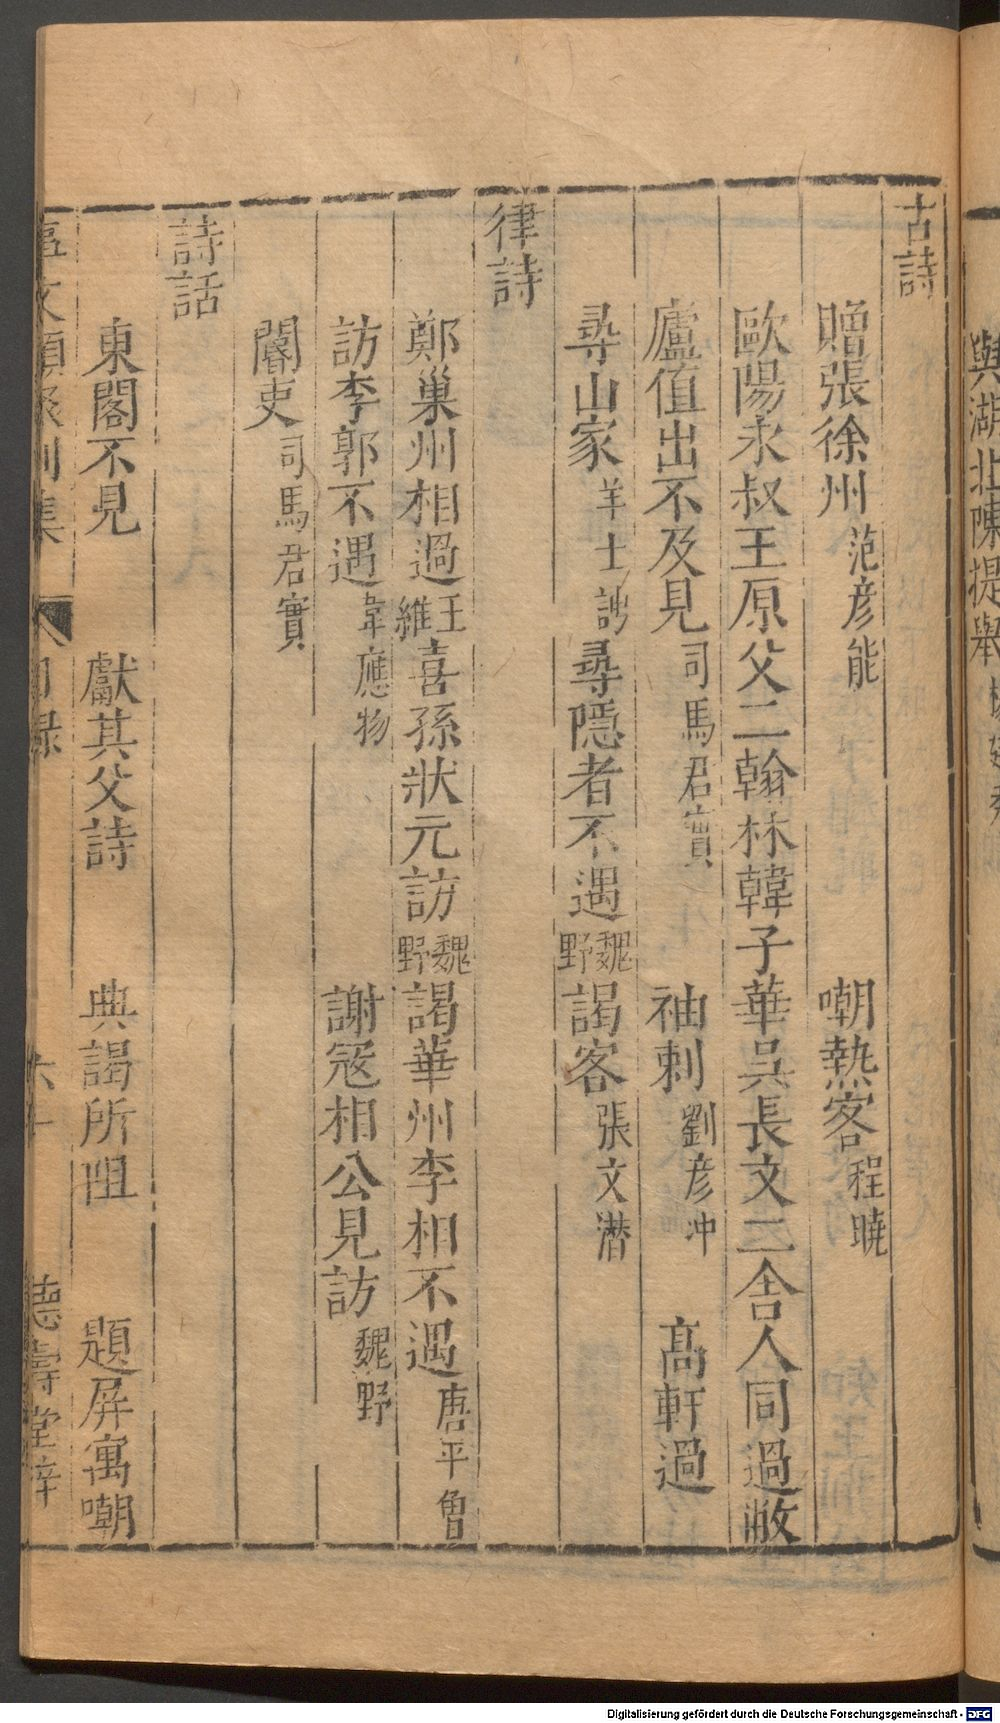 與湖北陳提舉
古詩
贈張徐州 范彦能 嘲熱客 程曉
歐陽永叔王原父二翰林韓子華吳長文二舍人同過敝
廬值出不及見 司馬君實 袖刺 劉彦冲 高軒過
尋山家 羊士諤 尋隱者不遇 魏野 謁客 張文潜
律詩
鄭巢州相過 王維 喜孫狀元訪 魏野 謁華州李相不遇 唐平曾
訪李郭不遇 韋應物 謝冦相公見訪 魏野
閽吏 司馬君實
詩話
東閣不見 獻其父詩 典謁所阻 題屏寓嘲
文類聚別集 目録 六十 德壽堂梓
Digitalisierung gefördert durch die Deutsche Forschungsgemeinschaft - DFG